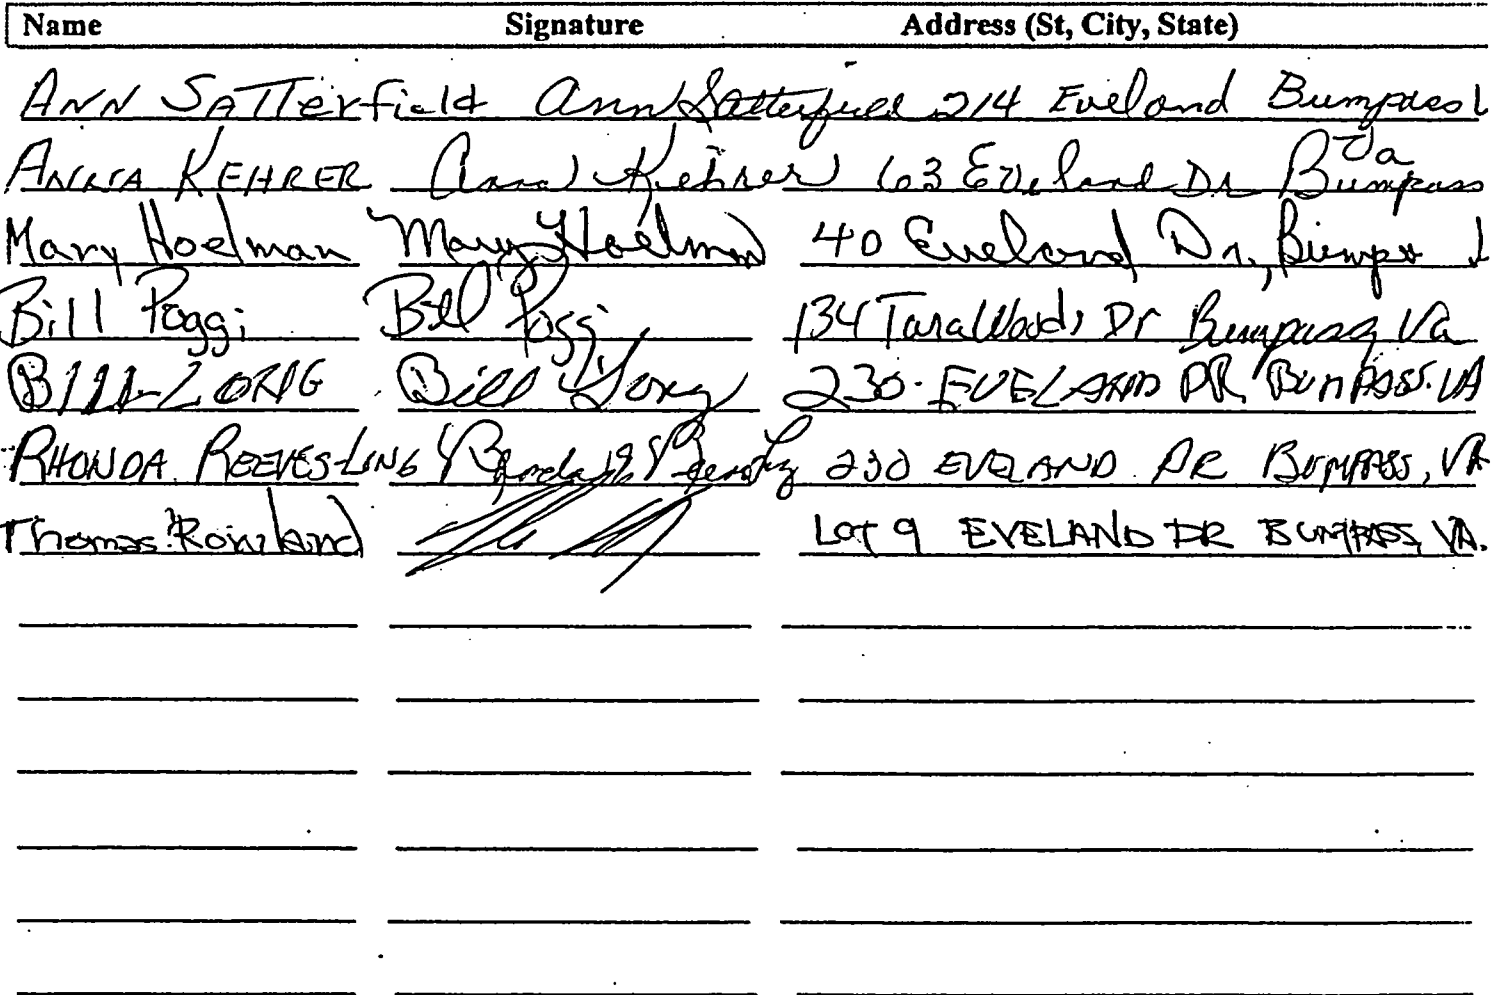 Name Signature Address (St, City, State)
ANN SATTerfield Ann Satterfield 214 Eveland Bumpass
Va
ANNA KEHRER Anna Kehrer 63 Eveland Dr Bumpass
Mary Hoelman Mary Hoelman 40 Eveland Dr.,
Bill Poggi Bill Poggi 134 Tara Woods Dr Bumpass Va
BILL LONG Bill Long 230 EVELAND DR. BUMPASS. VA
RHONDA REEVES-LONG 230 EVELAND DR BUMPASS, VA
Thomas Rowland LOT 9 EVELAND DR BUMPASS, VA.